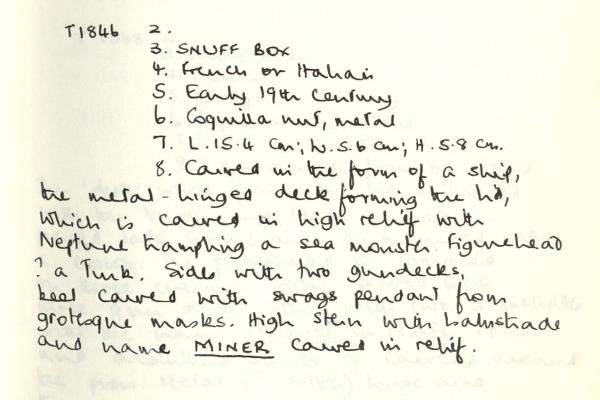 T1846 2.
3. SNUFF BOX
4. French or Italian
5. Early 19th century
6. Coquilla nut, metal
7. L. 15.4 cm; W. 5.6 cm; H. 5.8 cm.
8. Carved in the form of a ship,
the metal-hinged deck forming the lid,
which is carved in high relief with
Neptune trampling a sea monster. Figurehead
? a Turk. Sides with two gundecks,
keel carved with swags pendant from
grotesque masks. High stern with balustrade
and name MINER carved in relief.